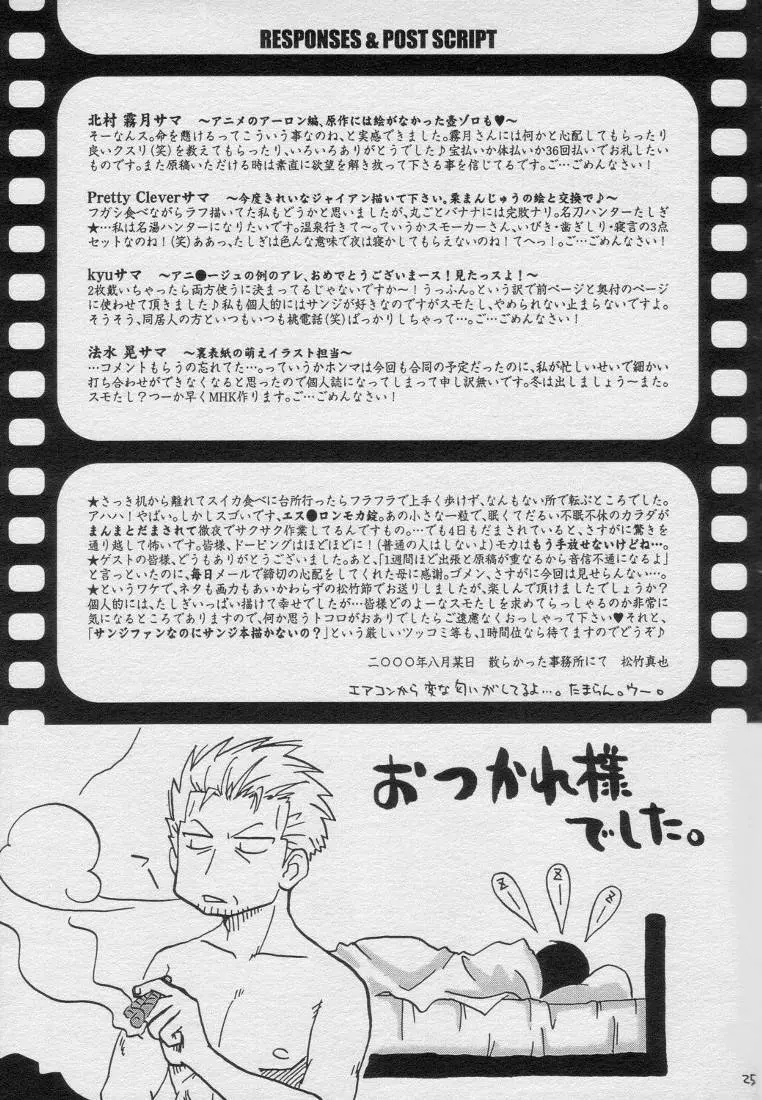 RESPONSES & POST SCRIPT
北村 霧月サマ ～アニメのアーロン編、原作には絵がなかった壺ゾロも♥～
そーなんス。命を懸けるってこういう事なのね、と実感できました。霧月さんには何かと心配してもらったり
良いクスリ(笑)を教えてもらったり、いろいろありがとうでした♪宝払いか体払いか36回払いでお礼したい
ものです。また原稿いただける時は素直に欲望を解き放って下さる事を信じてるです。ご…ごめんなさい！
Pretty Cleverサマ ～今度きれいなジャイアン描いて下さい。栗まんじゅうの絵と交換で♪～
フガシ食べながらラフ描いてた私もどうかと思いましたが、丸ごとバナナには完敗ナリ。名刀ハンターたしぎ
★…私は名湯ハンターになりたいです。温泉行きて～。ていうかスモーカーさん、いびき・歯ぎしり・寝言の3点
セットなのね！(笑)ああっ、たしぎは色んな意味で夜は寝かしてもらえないのね！てへっ！。ご…ごめんなさい！
kyuサマ ～アニ●ージュの例のアレ、おめでとうございまース！見たっスよ！～
2枚戴いちゃったら両方使うに決まってるじゃないですか～！うっふん。という訳で前ページと奥付のページ
に使わせて頂きました♪私も個人的にはサンジが好きなのですがスモたし、やめられない止まらないですよ。
そうそう、同居人の方といつもいつも桃電話(笑)ばっかりしちゃって…。ご…ごめんなさい！
法水 晃サマ ～裏表紙の萌えイラスト担当～
…コメントもらうの忘れてた…。っていうかホンマは今回も合同の予定だったのに、私が忙しいせいで細かい
打ち合わせができなくなると思ったので個人誌になってしまって申し訳無いです。冬は出しましょう～また。
スモたし？つーか早くMHK作ります。ご…ごめんなさい！
★さっき机から離れてスイカ食べに台所行ったらフラフラで上手く歩けず、なんもない所で転ぶところでした。
アハハ！やばい。しかしスゴいです、エス●ロンモカ錠。あの小さな一粒で、眠くてだるい不眠不休のカラダが
まんまとだまされて徹夜でサクサク作業してるんですもの。…でも4日もだまされていると、さすがに驚きを
通り越して怖いです。皆様、ドーピングはほどほどに！(普通の人はしないよ)モカはもう手放せないけどね…。
★ゲストの皆様、どうもありがとうございました。あと、「1週間ほど出張と原稿が重なるから音信不通になるよ」
と言っといたのに、毎日メールで締切の心配をしてくれた母に感謝。ゴメン、さすがに今回は見せらんない…。
★というワケで、ネタも画力もあいかわらずの松竹節でお送りしましたが、楽しんで頂けましたでしょうか？
個人的には、たしぎいっぱい描けて幸せでしたが…皆様どのよーなスモたしを求めてらっしゃるのか非常に
気になるところでありますので、何か思うトコロがおありでしたらご遠慮なくおっしゃって下さい♥それと、
「サンジファンなのにサンジ本描かないの？」という厳しいツッコミ等も、1時間位なら待てますのでどうぞ♪
二〇〇〇年八月某日 散らかった事務所にて 松竹真也
エアコンから変な匂いがしてるよ…。たまらん。ウー。
おつかれ様
でした。
Z Z Z
25